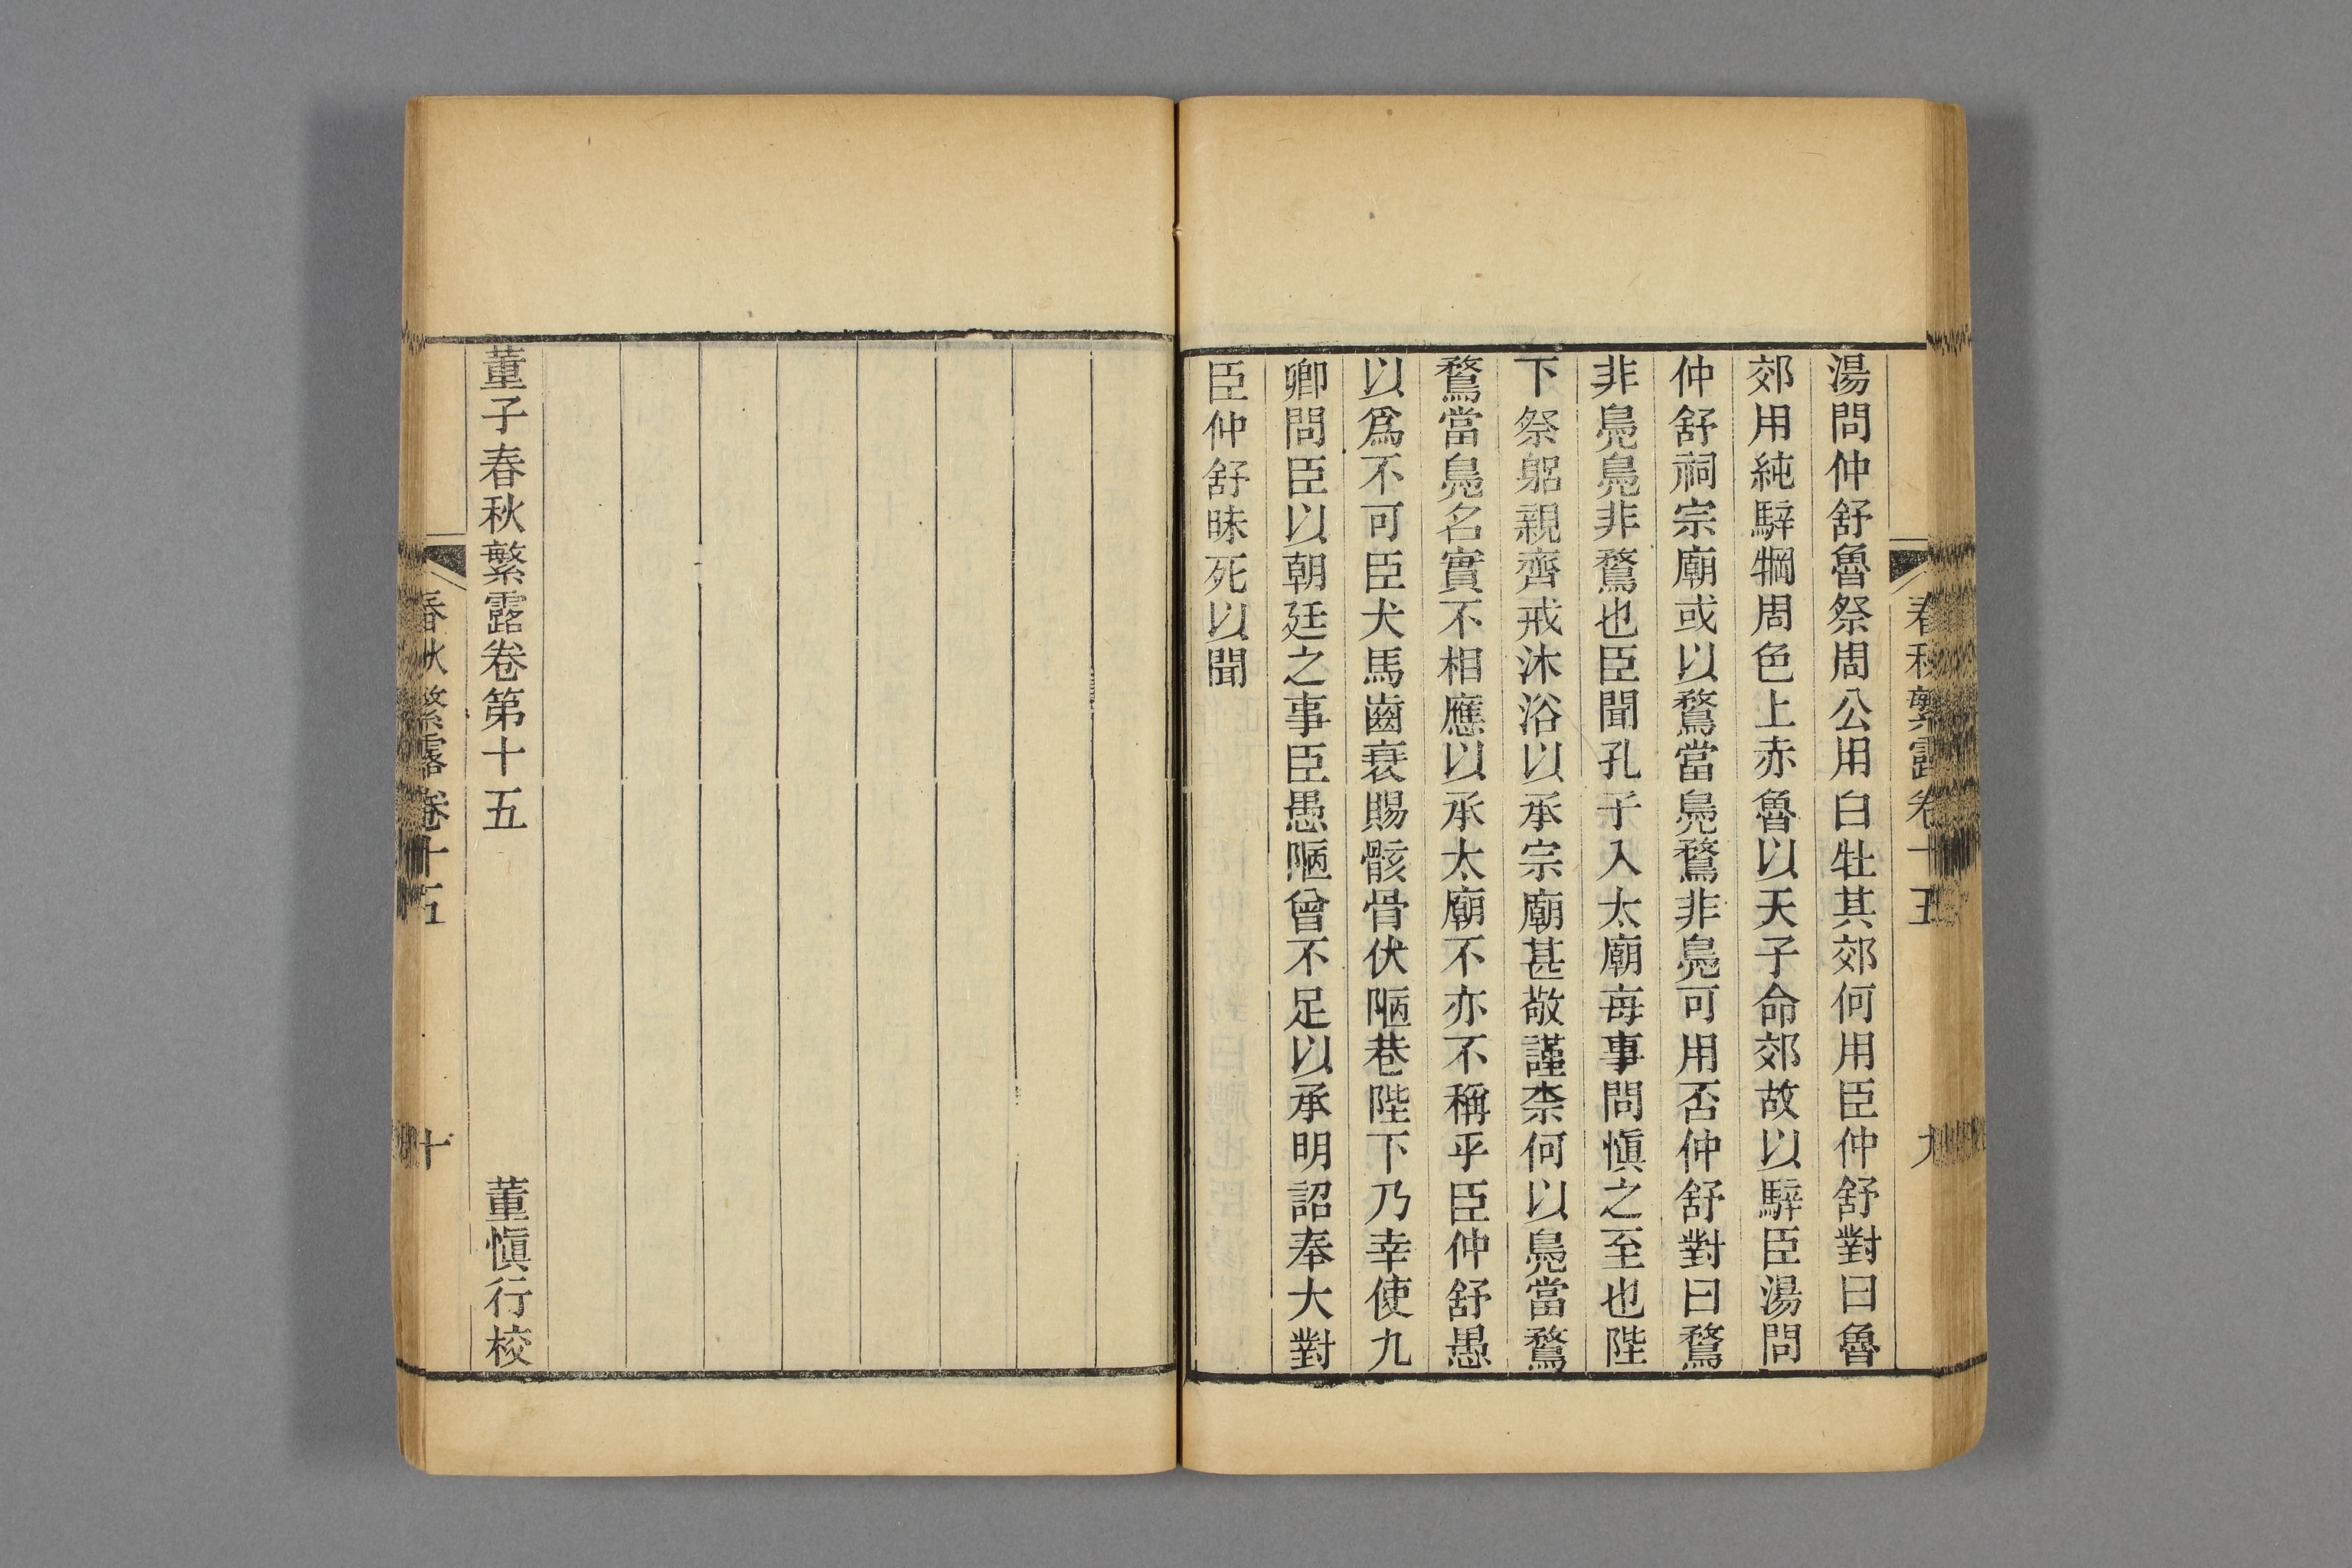 春秋繁露卷十五
九
湯問仲舒魯祭周公用白牡其郊何用臣仲舒對曰魯
郊用純騂犅周色上赤魯以天子命郊故以騂臣湯問
仲舒祠宗廟或以鶩當鳧鶩非鳧可用否仲舒對曰鶩
非鳧鳧非鶩也臣聞孔子入太廟每事問愼之至也陛
下祭躬親齊戒沐浴以承宗廟甚敬謹柰何以鳧當鶩
鶩當鳧名實不相應以承太廟不亦不稱乎臣仲舒愚
以爲不可臣犬馬齒衰賜骸骨伏陋巷陛下乃幸使九
卿問臣以朝廷之事臣愚陋曾不足以承明詔奉大對
臣仲舒昧死以聞
董子春秋繁露卷第十五
董愼行校
春秋繁露卷十五
十